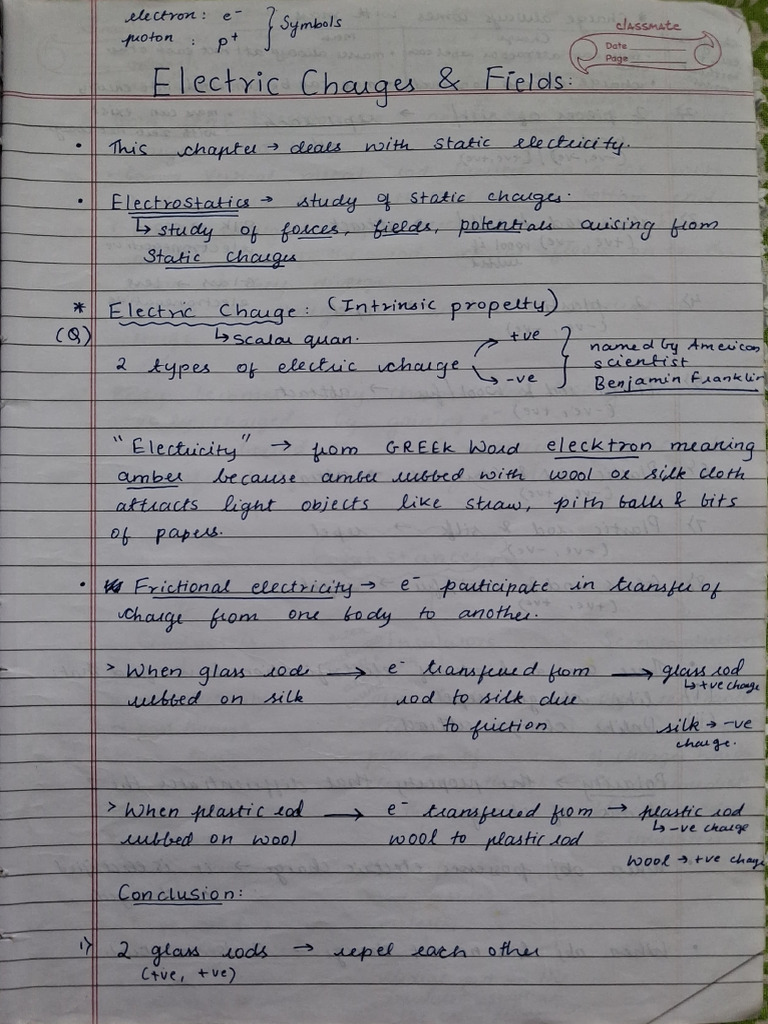 electron : e⁻ } Symbols
proton : p⁺
classmate
Date
Page
Electric Charges & Fields:
• This chapter → deals with static electricity.
• Electrostatics → study of static charges.
↳ study of forces, fields, potentials arising from
Static charges
* Electric Charge : (Intrinsic property)
(Q) ↳ scalar quan.
2 types of electric charge → +ve → -ve } named by American
scientist
Benjamin Franklin
"Electricity" → from GREEK word elecktron meaning
amber because amber rubbed with wool or silk cloth
attracts light objects like straw, pith balls & bits
of papers.
• Frictional electricity → e⁻ participate in transfer of
charge from one body to another.
> When glass rods → e⁻ transferred from → glass rod
↳ +ve charge
rubbed on silk rod to silk due
to friction silk → -ve
charge.
> When plastic rod → e⁻ transferred from → plastic rod
↳ -ve charge
rubbed on wool wool to plastic rod
wool → +ve charge
Conclusion:
1) 2 glass rods → repel each other
(+ve, +ve)